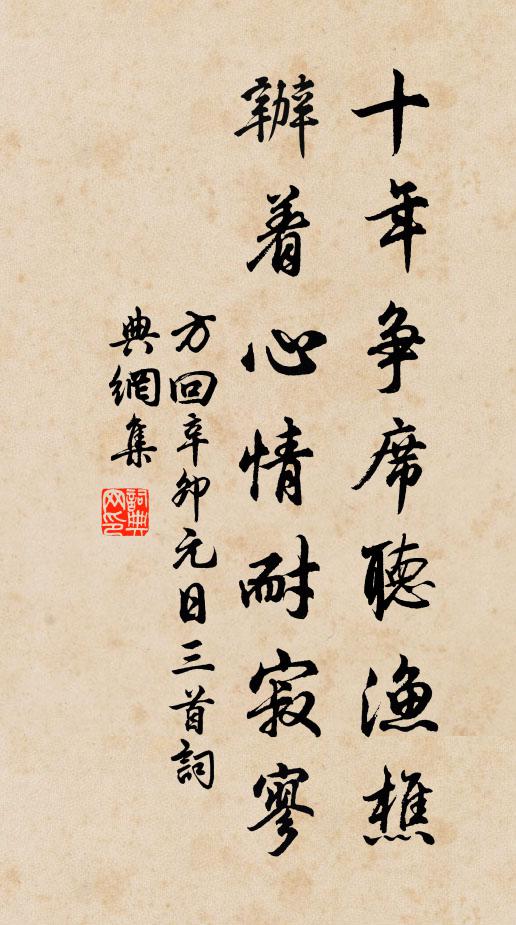 十年争席聴漁樵
辦着心情耐寂寥
方回辛卯元日三首詞
典網集
詞典网印